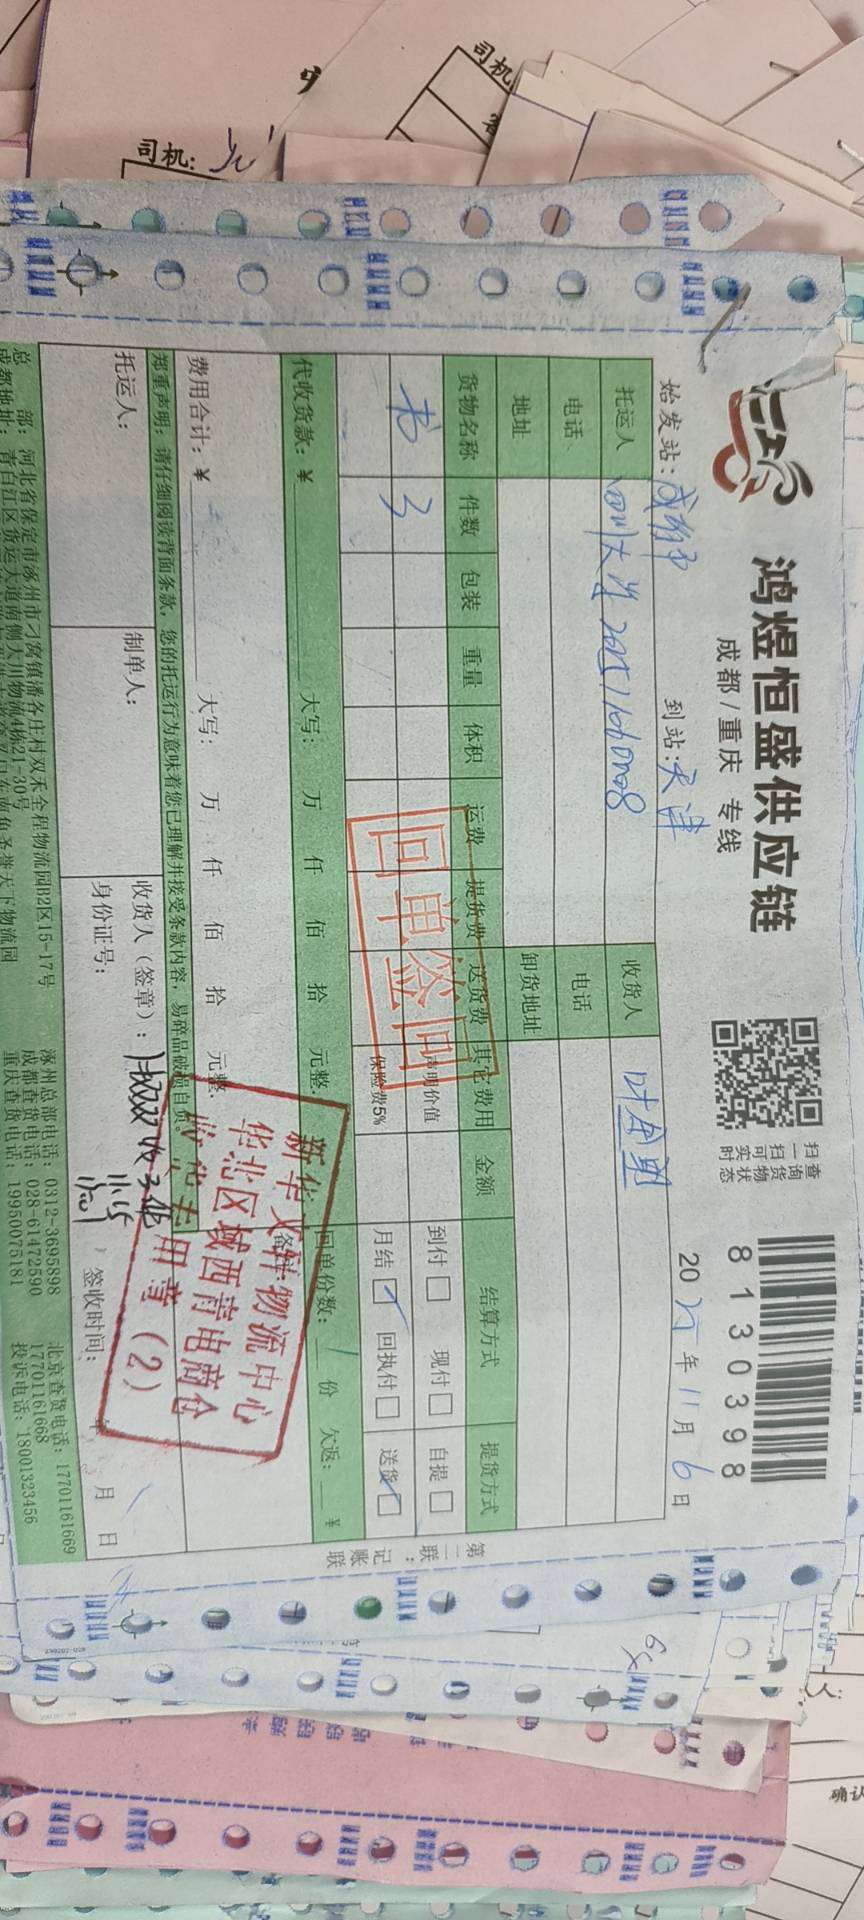 鸿煜恒盛供应链
成都/重庆 专线
扫一扫可实时
查询货物状态
8130398
始发站：成都
到站：天津
2025年11月6日
托运人 四川大学
收货人 叶金明
电话
电话
地址
卸货地址
货物名称 件数 包装 重量 体积 运费 提货费 送货费 其它费用 金额 结算方式 提货方式
书 3
声明价值
到付□ 现付□ 自提□
保险费5%
月结□ 回执付□ 送货□
回单签回
代收货款：¥ 大写： 万 仟 佰 拾 元整.
回单份数：1份 欠返： ¥
费用合计：¥ 大写： 万 仟 佰 拾 元整.
备注：
郑重声明：请仔细阅读背面条款，您的托运行为意味着您已理解并接受条款内容，易碎品破损自负。
托运人：
制单人：
收货人（签章）：
身份证号：
签收时间： 年 月 日
新华文轩物流中心
华北区域西青电商仓
专用章（2）
第二联：记账联
总 部：河北省保定市涿州市刁窝镇潘各庄村双禾全程物流园B2区15-17号
成都地址：青白江区货运大道南侧大川物流4栋21-30号
涿州总部电话：0312-3695898
成都查货电话：028-61472590
重庆查货电话：19950075181
北京查货电话：17701161669
17701161668
投诉电话：18001323456
司机：
司机
确认